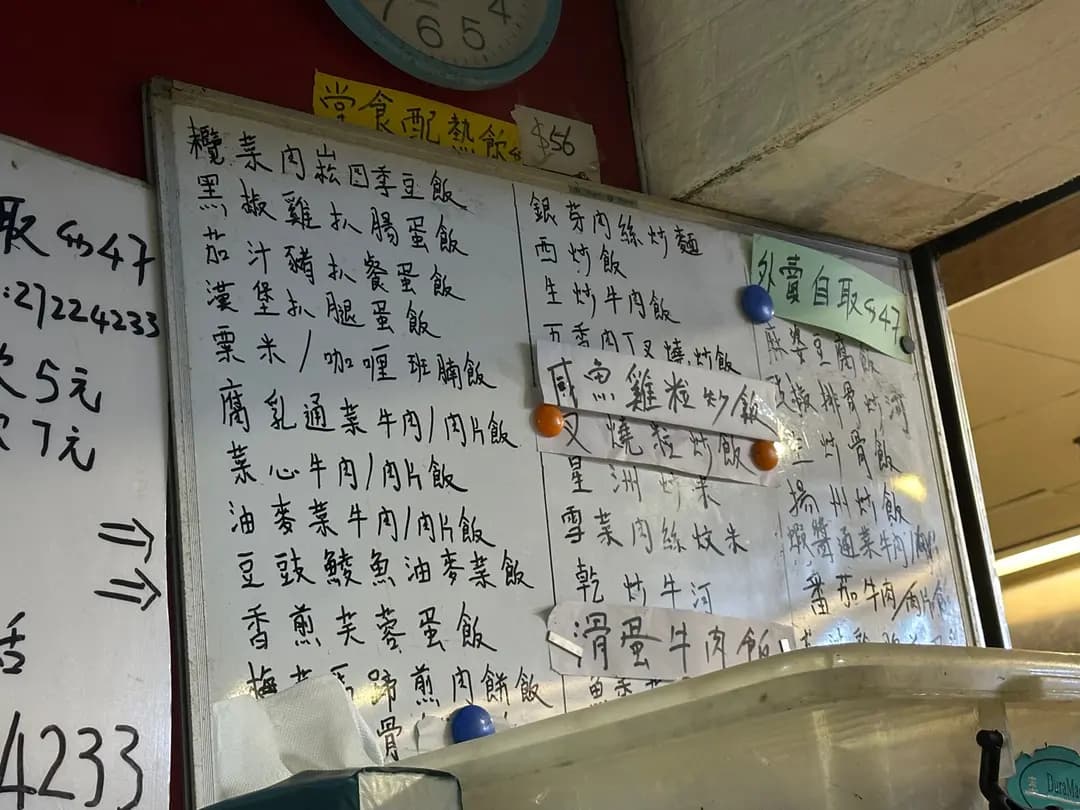 7 6 5 4
堂食配熱飲
$56
取$47
:27224233
5元
7元
⇒
⇒
話
4233
欖菜肉崧四季豆飯
黑椒雞扒腸蛋飯
茄汁豬扒餐蛋飯
漢堡扒腿蛋飯
粟米/咖喱班腩飯
腐乳通菜牛肉/肉片飯
菜心牛肉/肉片飯
油麥菜牛肉/肉片飯
豆豉鯪魚油麥菜飯
香煎芙蓉蛋飯
梅菜馬蹄煎肉餅飯
骨
銀芽肉絲炒麵
西炒飯
生炒牛肉飯
五香肉丁叉燒炒飯
咸魚雞粒炒飯
叉燒粒炒飯
星洲炒米
雪菜肉絲炆米
乾炒牛河
滑蛋牛肉飯
魚香
外賣自取$47
麻婆豆腐飯
椒排骨炒河
生炒骨飯
揚州炒飯
蝦醬通菜牛肉/
番茄牛肉/肉片飯
DuraMa